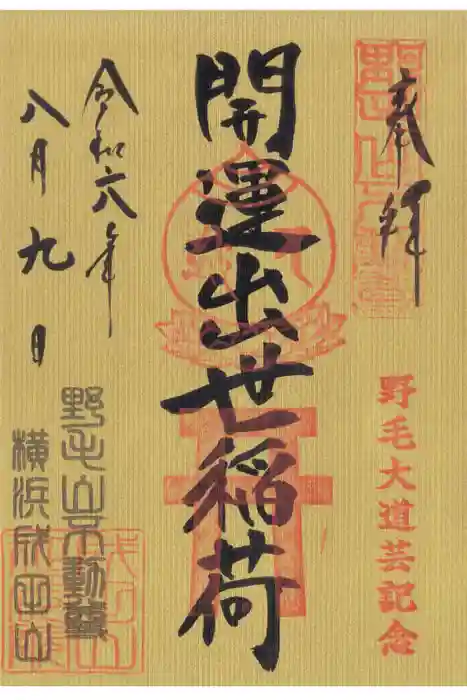 奉拝
野毛大道芸記念
開運出世稲荷
令和六年
八月九日
野毛山不動尊
横浜成田山